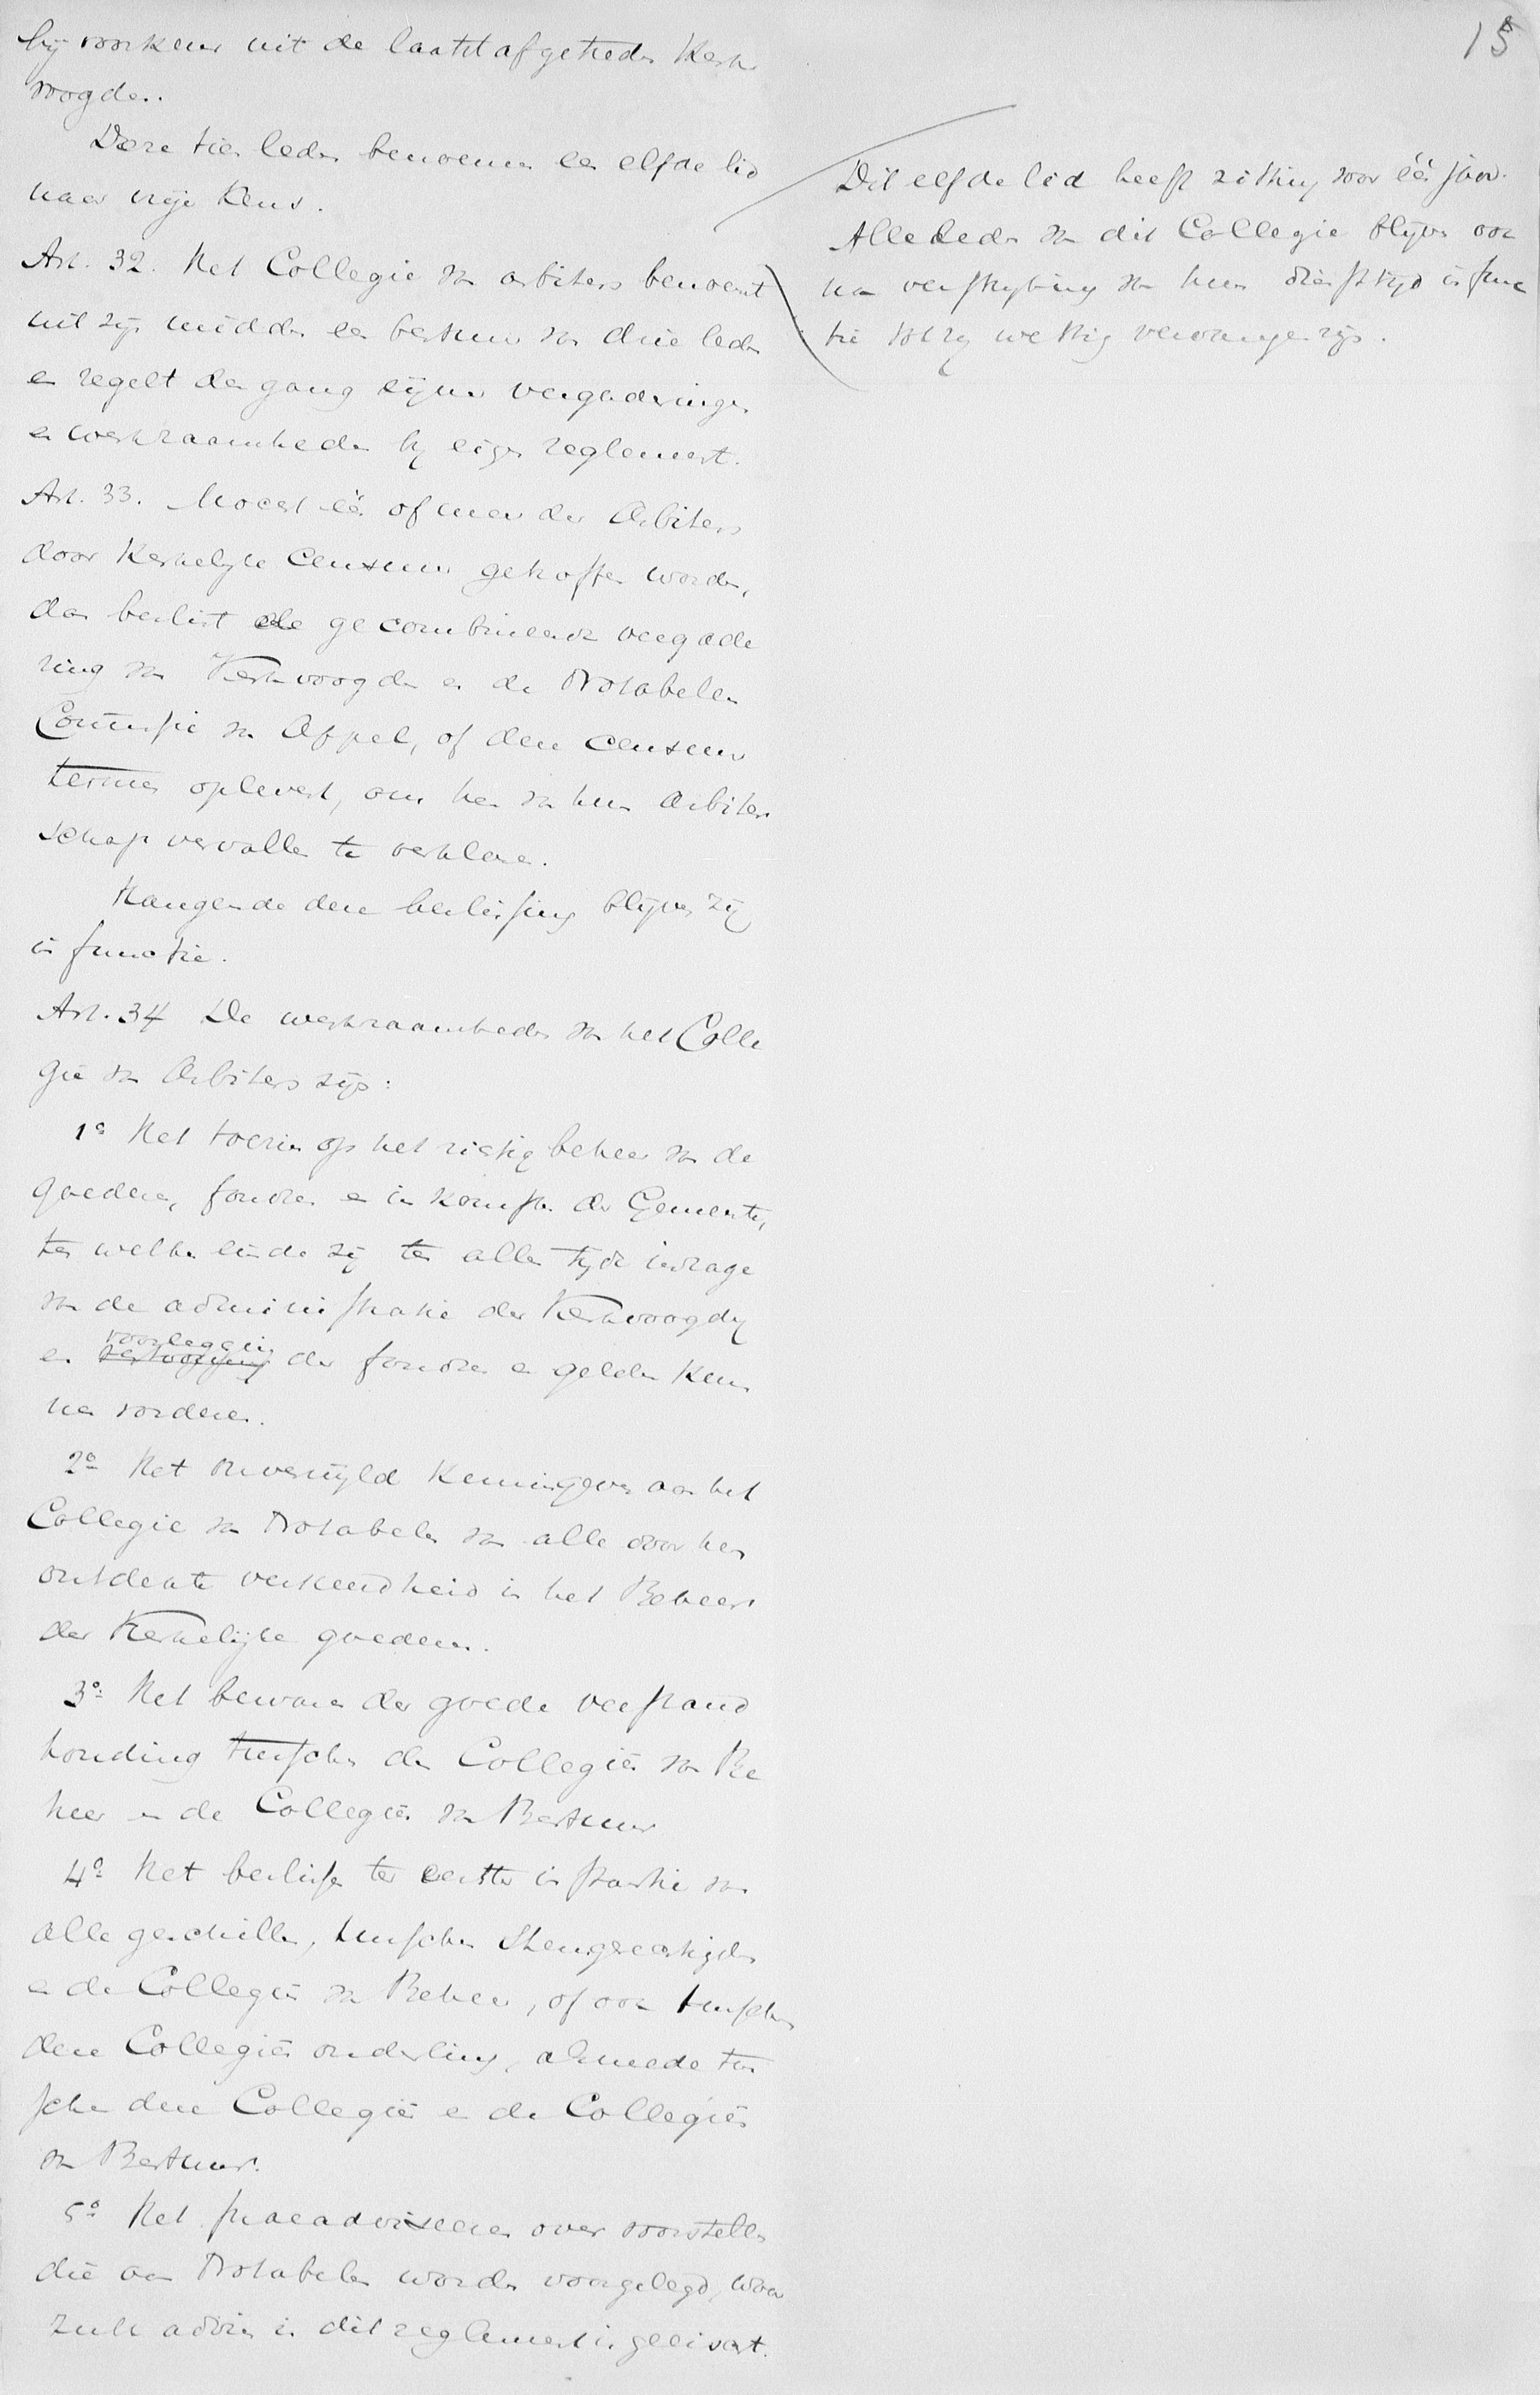 15
bij voorkeur uit de laatst afgetreden Kerk
voogden.
Deze tien leden benoemen een elfde lid
naar vrije keus.
Art. 32. Het Collegie van arbiters benoemt
uit zijn midden een bestuur van drie leden
en regelt den gang zijner vergaderingen
en werkzaamheden bij eigen reglement.
Art. 33. Mocht één of meer der Arbiters
door Kerkelijke Censuur getroffen worden,
dan beslist de gecombineerde vergade
ring van Kerkvoogden en de Notabelen
Commissie van Appel, of deze censuur
termen oplevert, om hen van hun Arbiter
schap vervallen te verklaren.
Hangende deze beslissing blijven zij
in functie.
Art. 34 De werkzaamheden van het Colle
gie van Arbiters zijn:
1o Het toezien op het richtig beheer van de
goederen, fondsen en inkomsten der Gemeente,
ten welken einde zij ten allen tijde inzage
van de administratie der Kerkvoogdij
voorlegging
en der fondsen en gelden kun
nen vorderen.
2o Het onverwijld kennisgeven aan het
Collegie van Notabelen van alle door hen
ontdekte verkeerdheid in het Beheer
der Kerkelijke goederen.
3o Het bewaren der goede verstand
houding tusschen de Collegiën van Be
heer en de Collegiën van Bestuur
4o Het beslissen ter eerster instantie van
alle geschillen, tusschen Stemgerechtigden
en de Collegiën van Beheer, of ook tusschen
deze Collegiën onderling, alsmede tus
schen deze Collegiën en de Collegiën
van Bestuur.
5o Het praeadviseeren over voorstellen
die aan Notabelen worden voorgelegd, waar
zulk advies in dit reglement is geëischt.
Dit elfde lid heeft zitting voor één jaar.
Alle Leden van dit Collegie blijven ook
na verstrijking van hun diensttijd in func
tie tot zij wettig vervangen zijn.